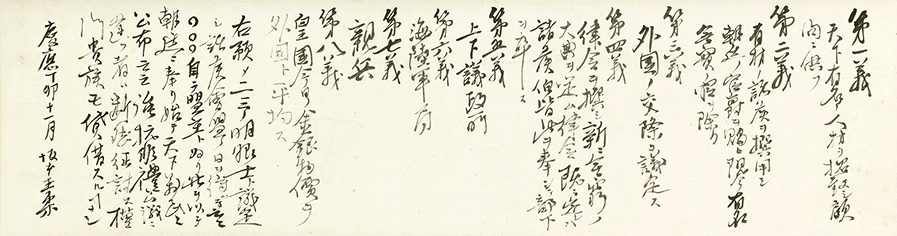 第一義
天下有名ノ人材ヲ招致シ顧
問ニ供フ
第二義
有材ノ諸侯ヲ撰用シ
朝廷ノ官爵ヲ賜ヒ現今有名
無實ノ官ヲ除ク
第三義
外国ノ交際ヲ議定ス
第四義
律令ヲ撰シ新ニ無窮ノ
大典ヲ定ム律令既ニ定レハ
諸侯伯皆此ヲ奉シテ部下
ヲ率ス
第五義
上下議政所
第六義
海陸軍局
第七義
親兵
第八義
皇國今日ノ金銀物價ヲ
外國ト平均ス
右預メ二三ノ明眼士ト議定
シ諸侯會盟ノ日ヲ待ツテ云々
〇〇〇自ラ盟主ト為リ此ヲ以テ
朝廷ニ奉リ始テ天下萬民ニ
公布云々強抗非礼公議ニ
違フ者ハ断然征討ス權
門貴族モ貸借スルコトナシ
慶應丁卯十一月 坂本直柔